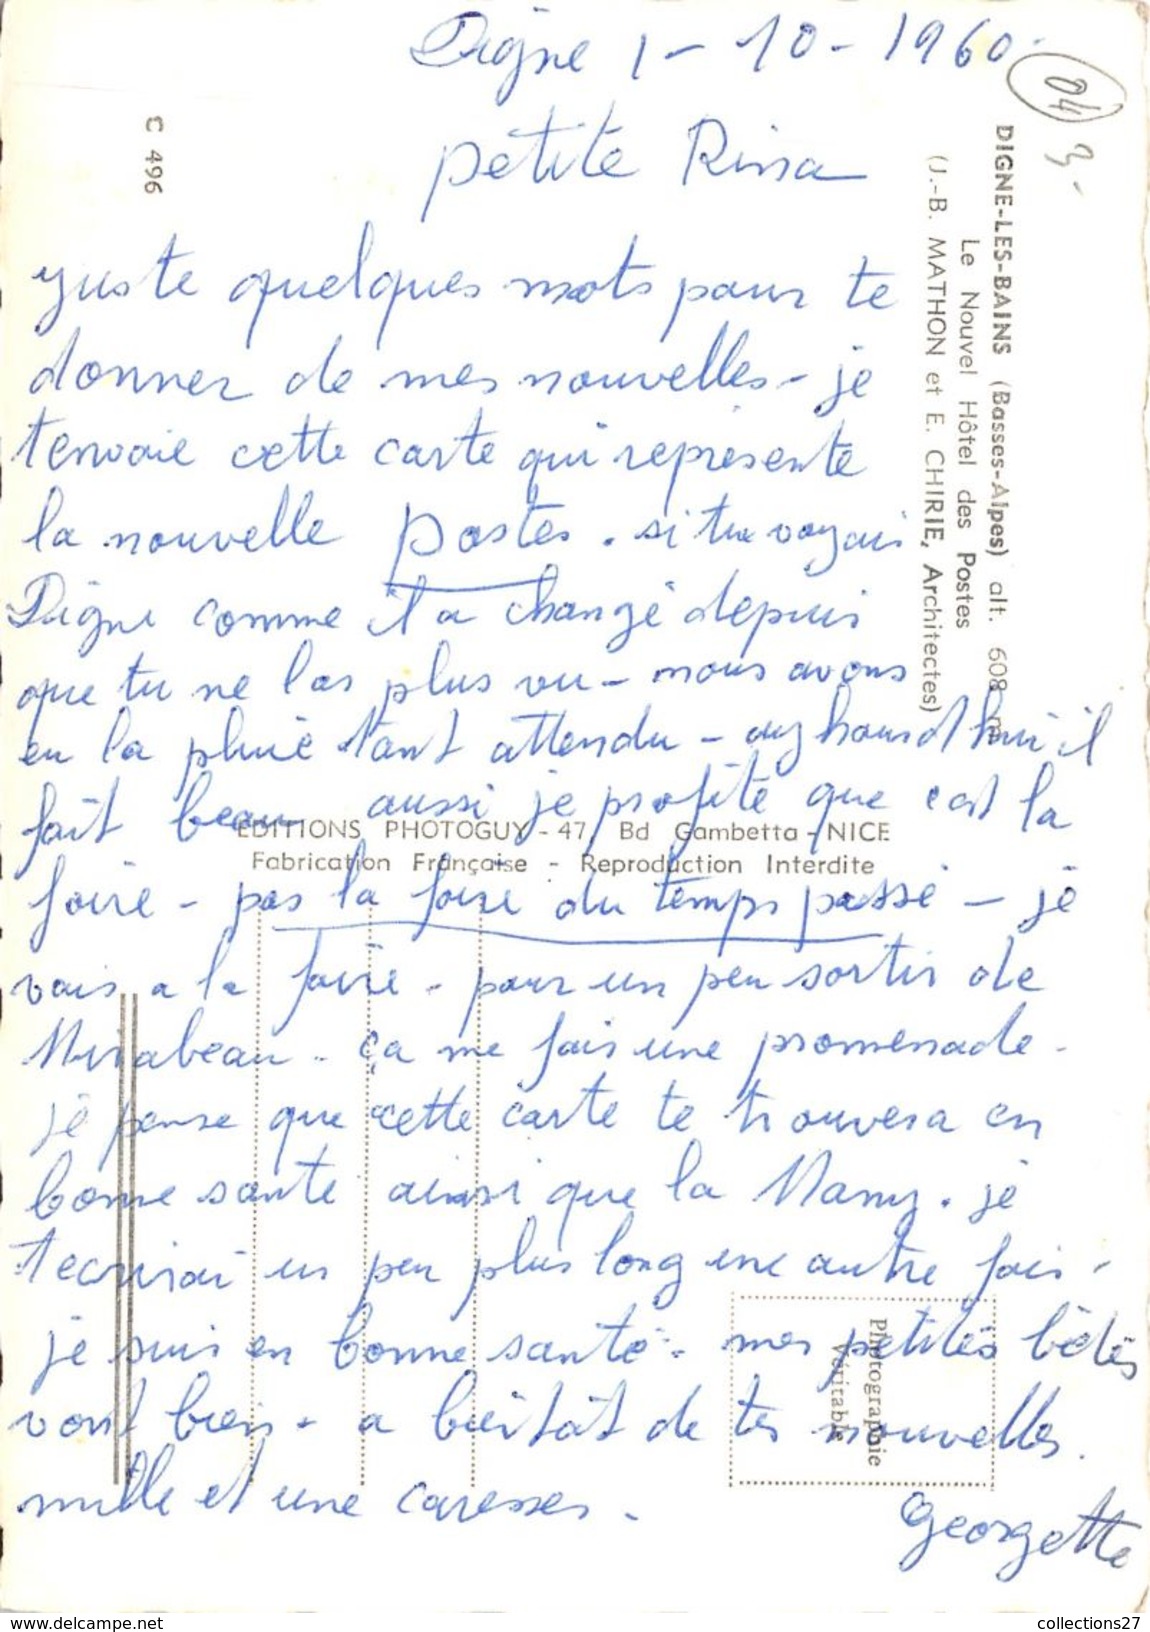 Digne 1 - 10 - 1960.
04
3-
petite Rina
yuste quelques mots pour te
donner de mes nouvelles - je
tenvoie cette carte qui represente
la nouvelle postes. si tu voyais
Digne comme il a changé depuis
que tu ne las plus vu - nous avons
eu la pluie tant attendu - aujhourd'hui il
fait beau aussi je profite que cest la
foire - pas la foire du temps passé - je
vais a la foire - pour un peu sortir de
Mirabeau - ça me fais une promenade -
je pense que cette carte te trouvera en
bonne sante ainsi que la Mamy. je
tecrirai un peu plus long une autre fois -
je suis en bonne santé - mes petites bêtes
vont bien - a bientôt de tes nouvelles.
mille et une caresses -
Georgette
C 496
DIGNE-LES-BAINS (Basses-Alpes) alt. 608 m
Le Nouvel Hôtel des Postes
(J.-B. MATHON et E. CHIRIE, Architectes)
EDITIONS PHOTOGUY - 47, Bd Gambetta - NICE
Fabrication Française - Reproduction Interdite
Photographie
Véritable
www.delcampe.net
collections27